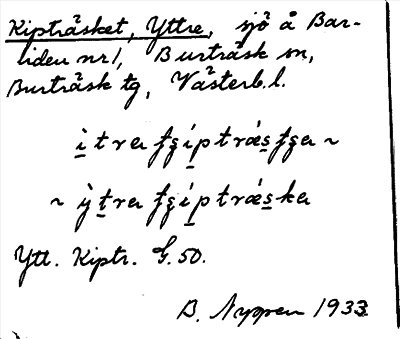 Kipträsket, Yttre, sjö å Bar-
liden nr 1, Burträsk sn,
Burträsk tg, Västerb. l.
i̱tra ʄʒi̱ptrǽs̱ʄʒa ~
~ ỳṯra ʄʒi̱ptrǽs̱ka
Ytt. Kiptr. G. 50.
B. Nygren 1933